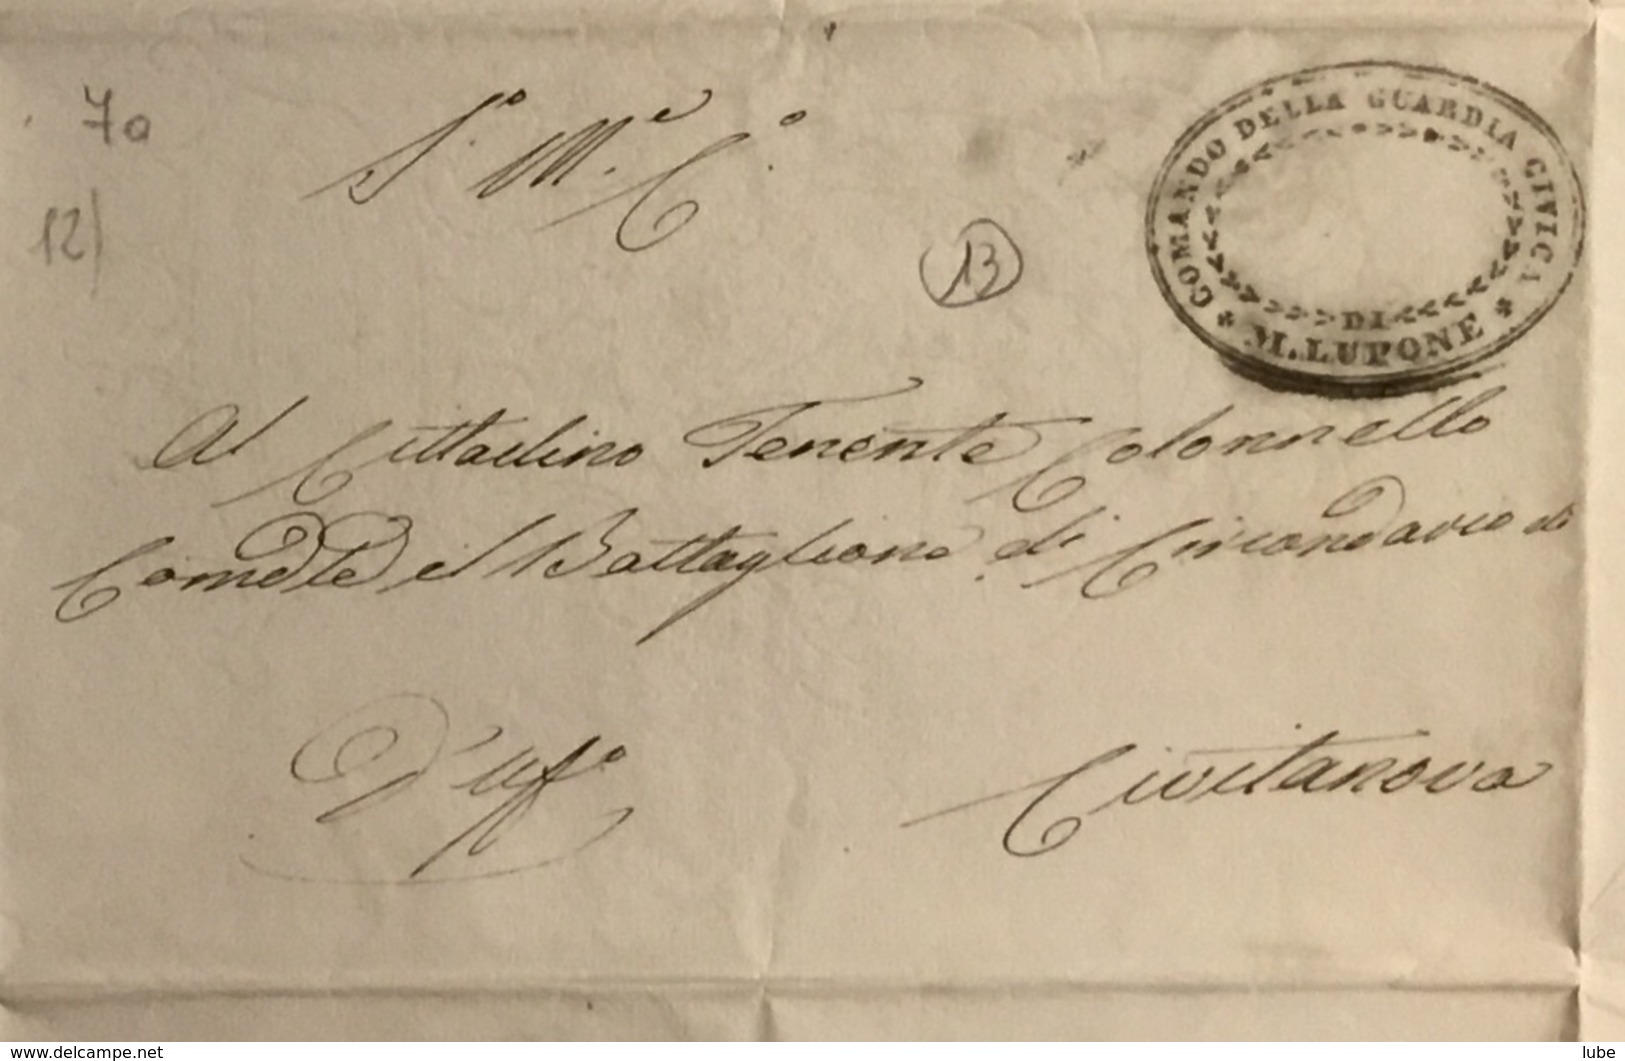 70
12)
S.º M.e C.º
13
COMANDO DELLA GUARDIA CIVICA
DI
* M. LUPONE *
Al Cittadino Tenente Colonnello
Comdte il Battaglione di Circondario di
D'Uffº
Civitanova
www.delcampe.net
lube